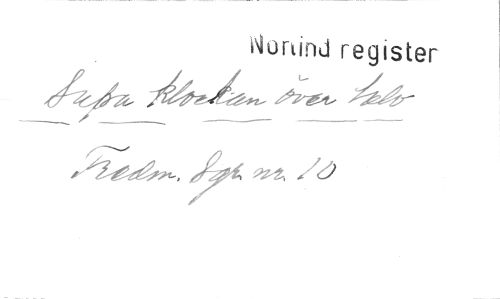 Norlind register
Supa klockan över tolv
Fredm. Sgr. nr. 20